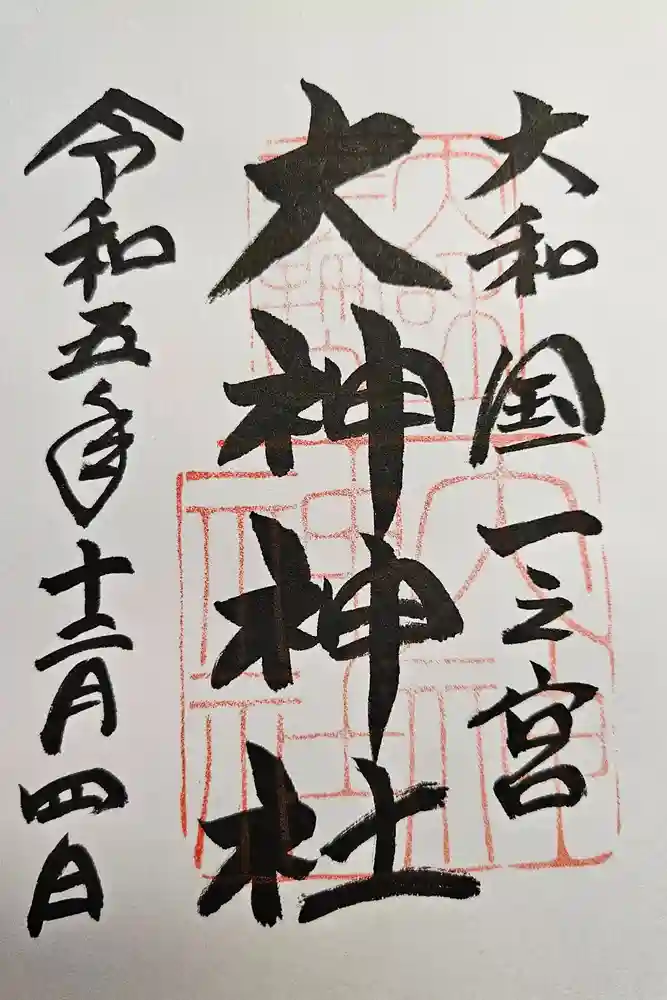 大和国一之宮
大神神社
令和五年十二月四日